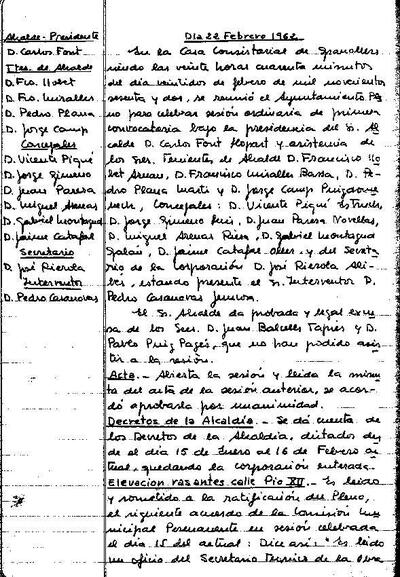 Alcalde-Presidente
D. Carlos Font
Ttes. de Alcalde
D. Fco. Llobet
D. Fco. Miralles
D. Pedro Plana
D. Jorge Camp
Concejales
D. Vicente Piqué
D. Jorge Gimeno
D. Juan Parera
D. Miguel Arenas
D. Gabriel Montagud
D. Jaime Catafal
Secretario
D. José Rierola
Interventor
D. Pedro Casanovas
Dia 22 Febrero 1962.
En la Casa Consistorial de Granollers
siendo las veinte horas cuarenta minutos
del dia veintidos de febrero de mil novecientos
sesenta y dos, se reunió el Ayuntamiento Ple
no para celebrar sesión ordinaria de primera
convocatoria bajo la presidencia del Sr. Al
calde D. Carlos Font Llopart y asistencia de
los Sres. Tenientes de Alcalde D. Francisco Llo
bet Arnan, D. Francisco Miralles Bassa, D. Pe-
dro Plana Marti y D. Jorge Camp Puigdome
nech, Concejales: D. Vicente Piqué Estruch,
D. Jorge Gimeno, D. Juan Parera Novellas,
D. Miguel Arenas Riera, D. Gabriel Montagud
D. Jaime Catafal y del Secreta
rio de la Corporación D. José Rierola Ali-
bés, estando presente el Sr. Interventor D.
Pedro Casanovas
El Sr. Alcalde da probada y legal excu
sa de los Sres. D. Juan Balcells Tapies y D.
Pablo Puig Pagés, que no han podido asis
tir a la sesión.
Acta.- Abierta la sesión y leida la minu
ta del acta de la sesión anterior, se acor-
dó aprobarla por unanimidad.
Decretos de la Alcaldia.- Se dá cuenta de
los Decretos de la Alcaldia, dictados des
de el dia 15 de Enero al 16 de Febrero ac
tual, quedando la corporación enterada.
Elevacion rasantes calle Pio XII.- Es leido
y sometido a la ratificación del Pleno,
el siguiente acuerdo de la Comisión Mu
nicipal Permanente en sesión celebrada
el dia 15 del actual: Dice así: "Es leido
un oficio del Secretario Técnico de la Obra